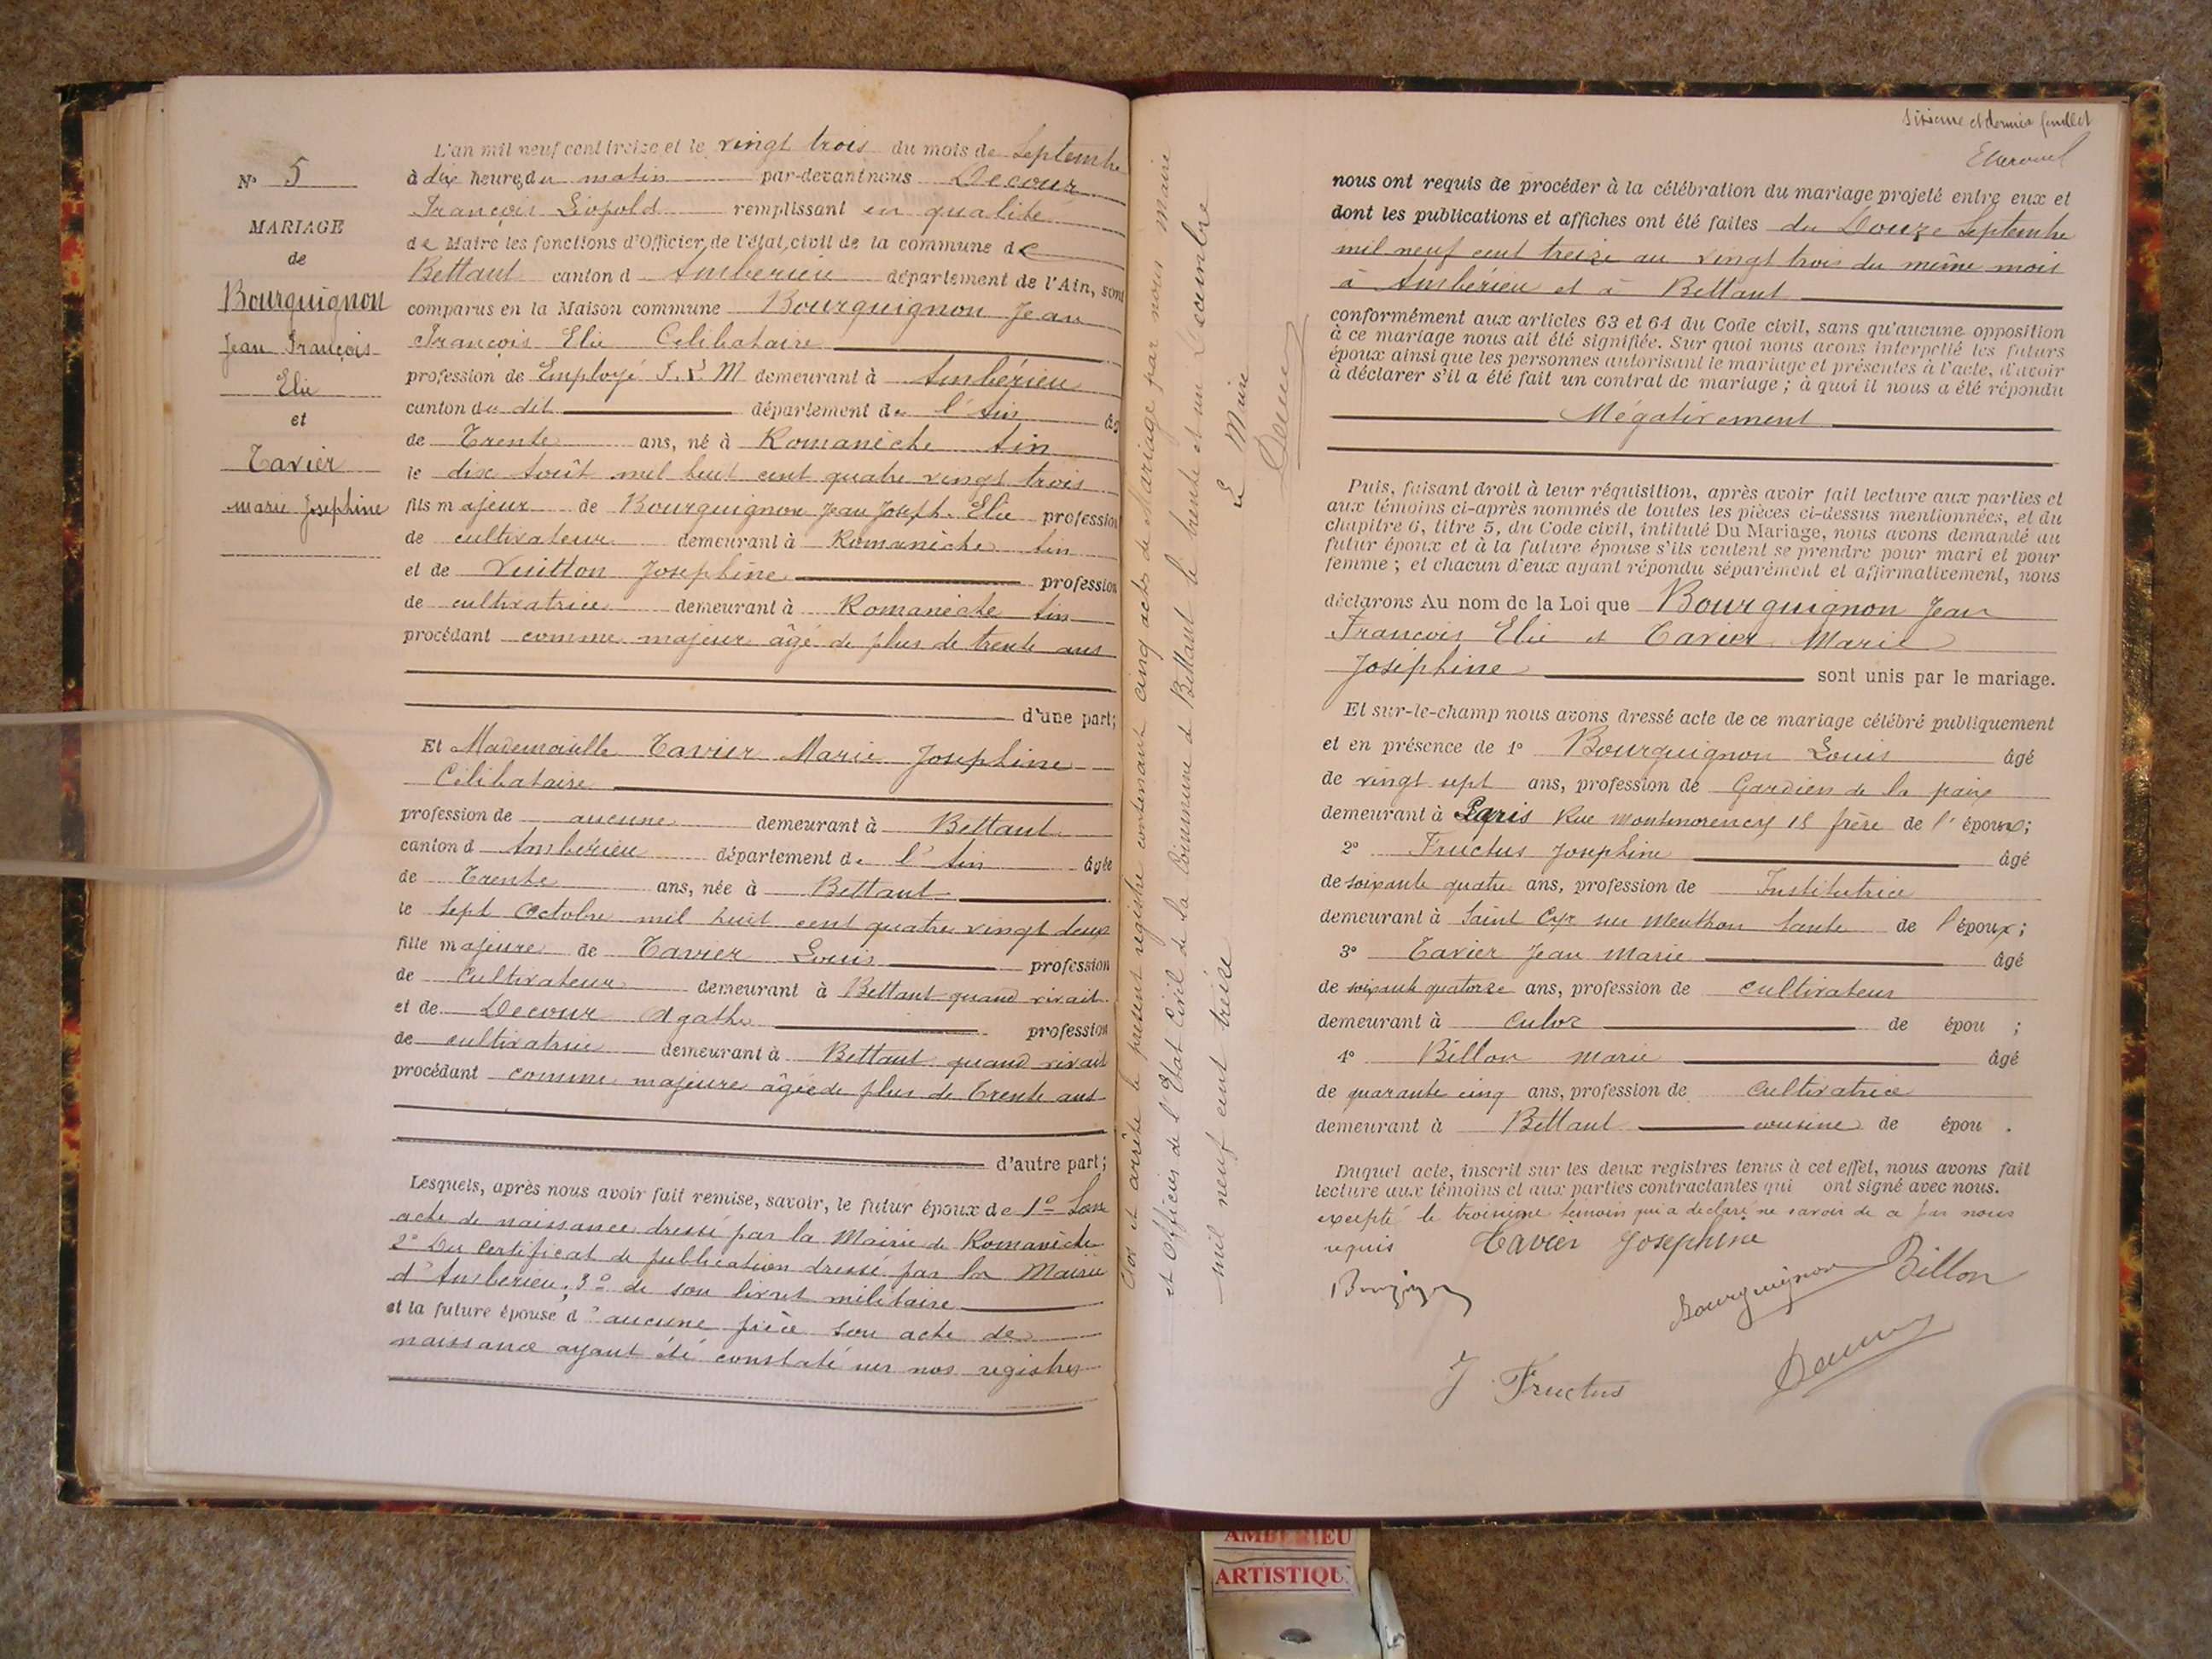 N° 5
MARIAGE
de
Bourguignon
Jean François
Elie
et
Tavier
marie Josephine
L'an mil neuf cent treize et le vingt trois du mois de Septembre
à dix heures du matin par-devant nous Decour
François Léopold remplissant en qualité
de Maire les fonctions d'Officier de l'état civil de la commune de
Bettant canton d Ambérieu département de l'Ain, sont
comparus en la Maison commune Bourguignon Jean
François Elie Célibataire
profession de Employé P.L M demeurant à Ambérieu
canton du dit département de l'Ain âgé
de Trente ans, né à Romanèche Ain
le dix Août mil huit cent quatre vingt trois
fils majeur de Bourguignon Jean Joseph Elie profession
de cultivateur demeurant à Romanèche Ain
et de Josephine profession
de cultivatrice demeurant à Romanèche Ain
procédant comme majeur âgé de plus de trente ans
d'une part;
Et Mademoiselle Tavier Marie Josephine
Célibataire
profession de aucune demeurant à Bettant
canton d Ambérieu département de l'Ain âgée
de Trente ans, née à Bettant
le sept Octobre mil huit cent quatre vingt deux
fille majeure de Tavier Louis profession
de Cultivateur demeurant à Bettant quand vivait
et de Decour Agathe profession
de cultivatrice demeurant à Bettant quand vivait
procédant comme majeure âgée de plus de Trente ans
d'autre part;
Lesquels, après nous avoir fait remise, savoir, le futur époux de 1° Son
acte de naissance dressé par la Mairie de Romanèche
2° Du Certificat de publication dressé par la Mairie
d'Ambérieu; 3° de son livret militaire
et la future épouse d'aucune pièce son acte de
naissance ayant été constaté sur nos registres
Clos et arrêté le présent registre contenant cinq actes de Mariage par nous Maire
et Officier de l'Etat Civil de la Commune de Bettant le trente et un Décembre
mil neuf cent treize
Le Maire
Decour
Sixième et dernier feuillet
nous ont requis de procéder à la célébration du mariage projeté entre eux et
dont les publications et affiches ont été faites du Douze Septembre
mil neuf cent treize au vingt trois du même mois
à Ambérieu et à Bettant
conformément aux articles 63 et 64 du Code civil, sans qu'aucune opposition
à ce mariage nous ait été signifiée. Sur quoi nous avons interpellé les futurs
époux ainsi que les personnes autorisant le mariage et présentes à l'acte, d'avoir
à déclarer s'il a été fait un contrat de mariage; à quoi il nous a été répondu
Négativement
Puis, faisant droit à leur réquisition, après avoir fait lecture aux parties et
aux témoins ci-après nommés de toutes les pièces ci-dessus mentionnées, et du
chapitre 6, titre 5, du Code civil, intitulé Du Mariage, nous avons demandé au
futur époux et à la future épouse s'ils veulent se prendre pour mari et pour
femme; et chacun d'eux ayant répondu séparément et affirmativement, nous
déclarons Au nom de la Loi que Bourguignon Jean
François Elie et Tavier Marie
Joséphine sont unis par le mariage.
Et sur-le-champ nous avons dressé acte de ce mariage célébré publiquement
et en présence de 1° Bourguignon Louis âgé
de vingt sept ans, profession de Gardien de la paix
demeurant à Paris Rue Montmorency 15 frère de l'époux;
2° Fructus Josephine âgé
de soixante quatre ans, profession de Institutrice
demeurant à Saint Cyr sur Menthon tante de l'époux;
3° Tavier Jean Marie âgé
de soixante quatorze ans, profession de cultivateur
demeurant à Culoz de épou ;
4° Billon Marie âgé
de quarante cinq ans, profession de Cultivatrice
demeurant à Bettant cousine de épou .
Duquel acte, inscrit sur les deux registres tenus à cet effet, nous avons fait
lecture aux témoins et aux parties contractantes qui ont signé avec nous.
excepté le troisième témoin qui a déclaré ne savoir de ce par nous
requis Tavier Josephine
Bourguignon Billon
J Fructus Decour
AMBERIEU
ARTISTIQU